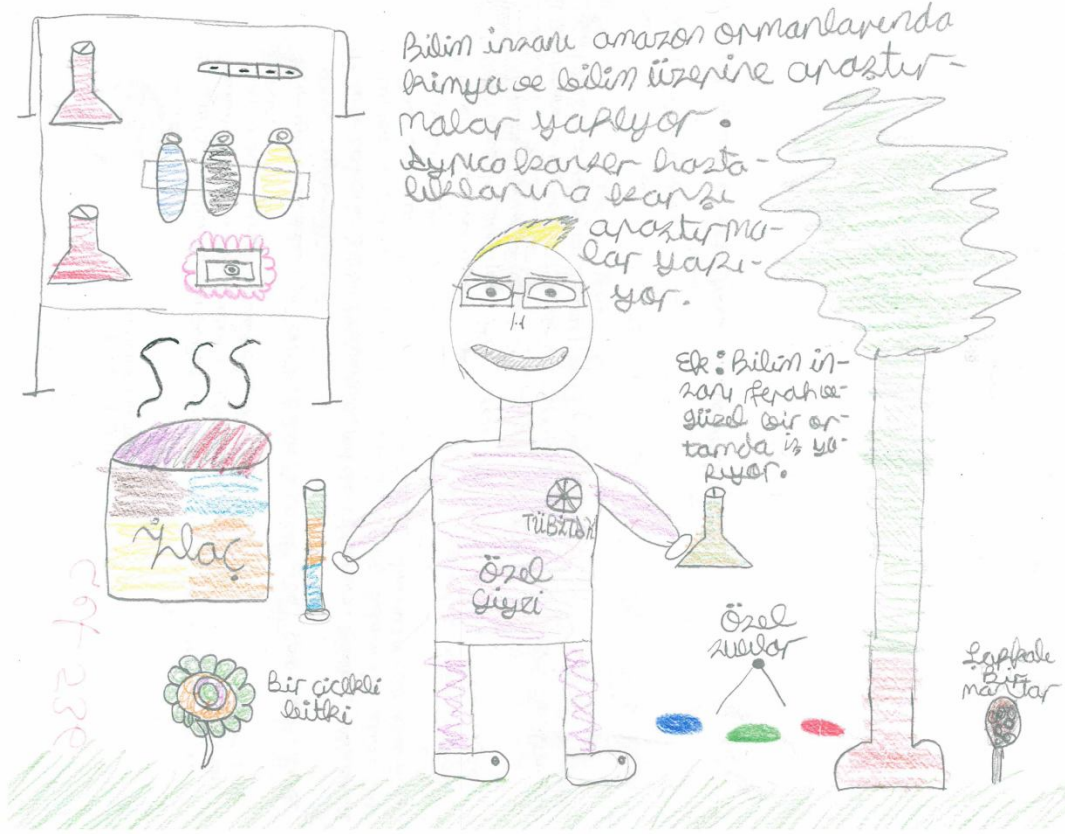 Bilim insanı amazon ormanlarında
kimya ve bilim üzerine araştır-
malar yapıyor.
Ayrıca kanser hasta-
lıklarına karşı
araştırma-
lar yapı-
yor.
Ek: Bilim in-
sanı ferah ve
güzel bir or-
tamda iş ya-
pıyor.
İlaç
TÜBİTAK
Özel
Giysi
Özel
sıvılar
Bir çiçekli
bitki
Şapkalı
Bir
mantar